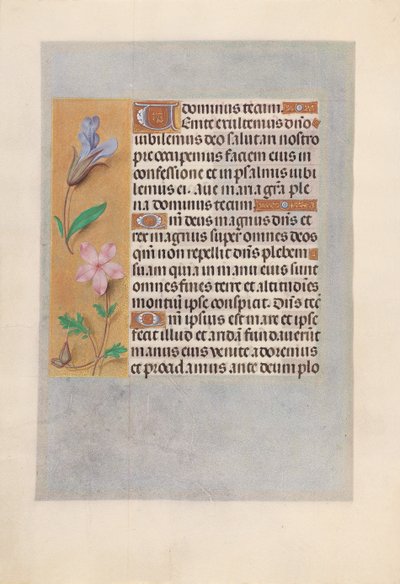 dominus tecum.
Venite exultemus dn̄o
iubilemus deo salutari nostro
preoccupemus faciem eius in
confessione et in psalmis iubi
lemus ei. Aue maria grā ple
na dominus tecum
Qm̄ deus magnus dn̄s et
rex magnus super omnes deos
qm̄ non repellit dn̄s plebem
suam quia in manu eius sunt
omnes fines terre et altitudines
montium ipse conspicit. Dn̄s tec̄
Qm̄ ipsius est mare et ipse
fecit illud et aridā fundauerūt
manus eius venite adoremus
et procidamus ante deum plo